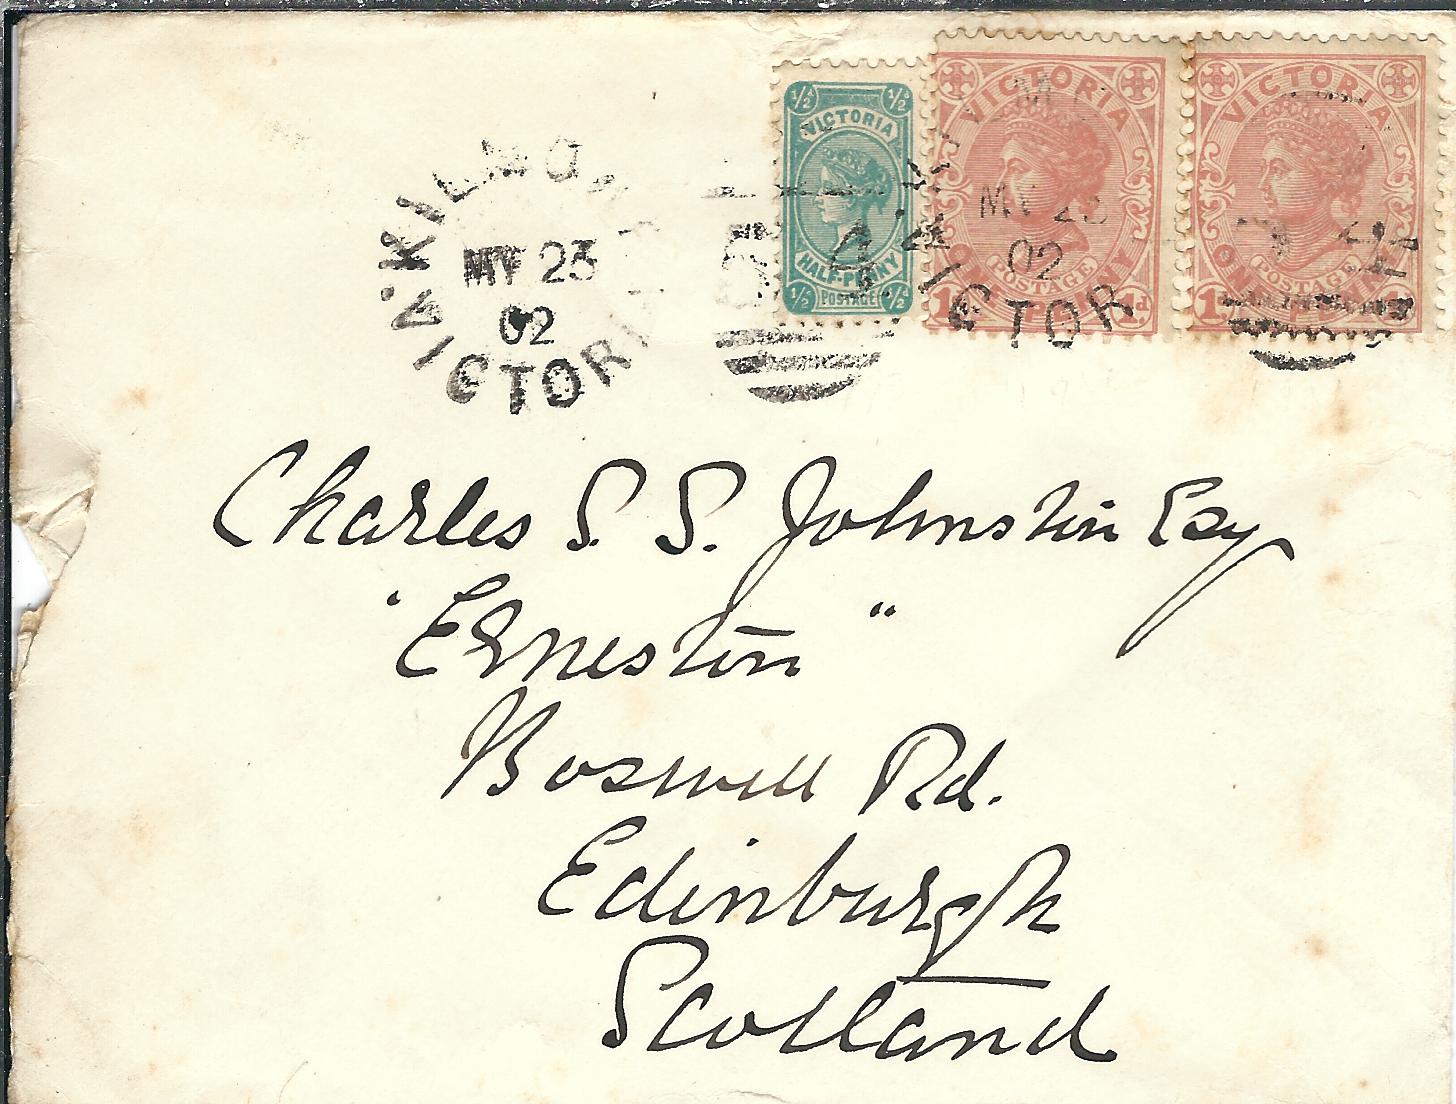 ½ ½
VICTORIA
HALF-PENNY
½ ½
POSTAGE
VICTORIA
POSTAGE
ONE PENNY
1d 1d
VICTORIA
POSTAGE
ONE PENNY
1d
KILMO
MY 23
02
VICTORIA
MY 23
02
VICTOR
Charles S. S. Johnston Esq
"Erneston"
Boswell Rd.
Edinburgh
Scotland